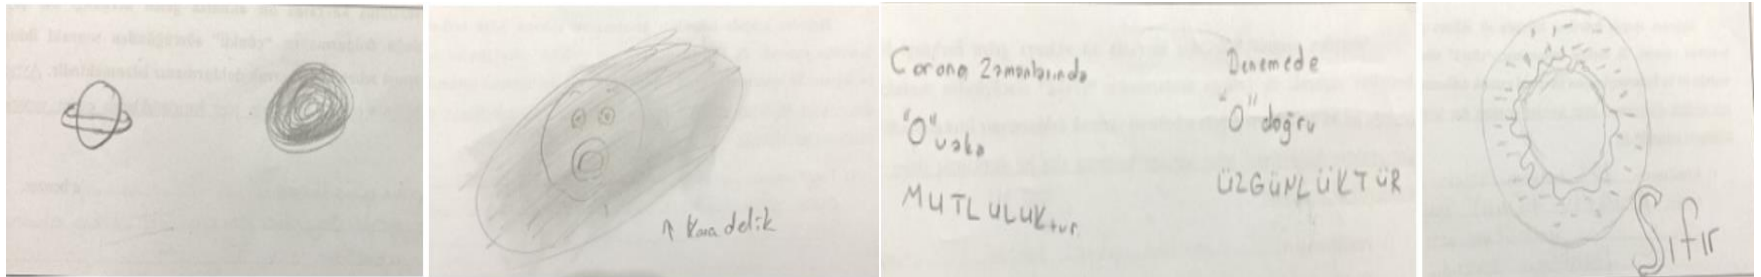 ↑ Kara delik
Corona Zamanlarında
"0" vaka
MUTLULUKtur.
Denemede
"0" doğru
ÜZGÜNLÜKTÜR
Sıfır